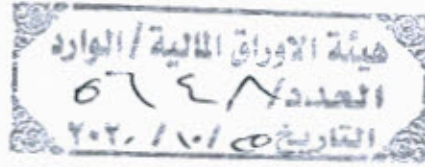 هيئة الاوراق المالية / الوارد
العدد/
التاريخ ٢٥ / ١٠ / ٢٠٢٠